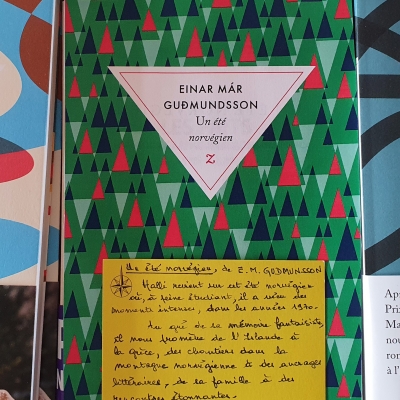 EINAR MÁR
GUÐMUNDSSON
Un été
norvégien
Z
Un été norvégien, de E. M. GUDMUNSSON
Hallé revient sur cet été norvégien
où, à peine étudiant, il a vécu des
moments intenses, dans les années 1970.
Au gré de sa mémoire fantaisiste,
il nous promène de l'Islande à
la Grèce, des chantiers dans la
montagne norvégienne à des ouvrages
littéraires, de sa famille à des
rencontres étonnantes.
Apr
Prix
Ma
nou
ron
à l'